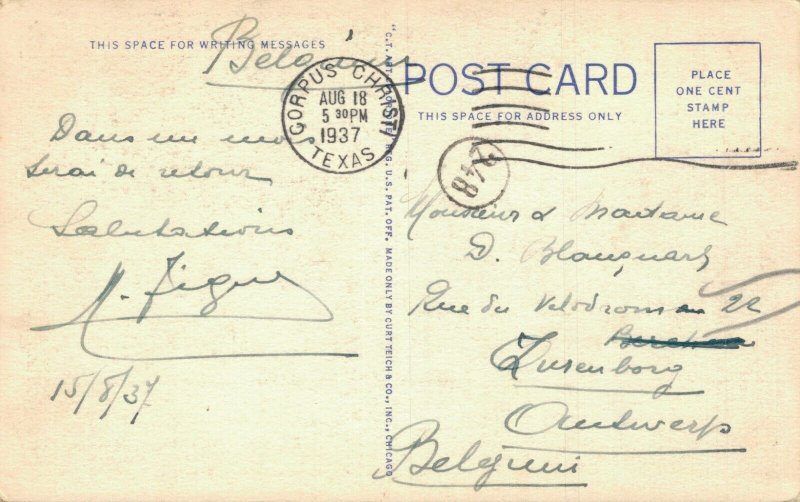 THIS SPACE FOR WRITING MESSAGES
Belgium
CORPUS CHRISTI
AUG 18
5 30 PM
1937
TEXAS
Dans un mois
Serai de retour
Salutations
15/8/37
MADE ONLY BY CURT TEICH & CO., INC., CHICAGO
REG. U.S. PAT. OFF.
POST CARD
THIS SPACE FOR ADDRESS ONLY
PLACE
ONE CENT
STAMP
HERE
Monsieur & Madame
D. Blanquart
Rue du Velodrome 22
Zurenborg
Antwerp
Belgium